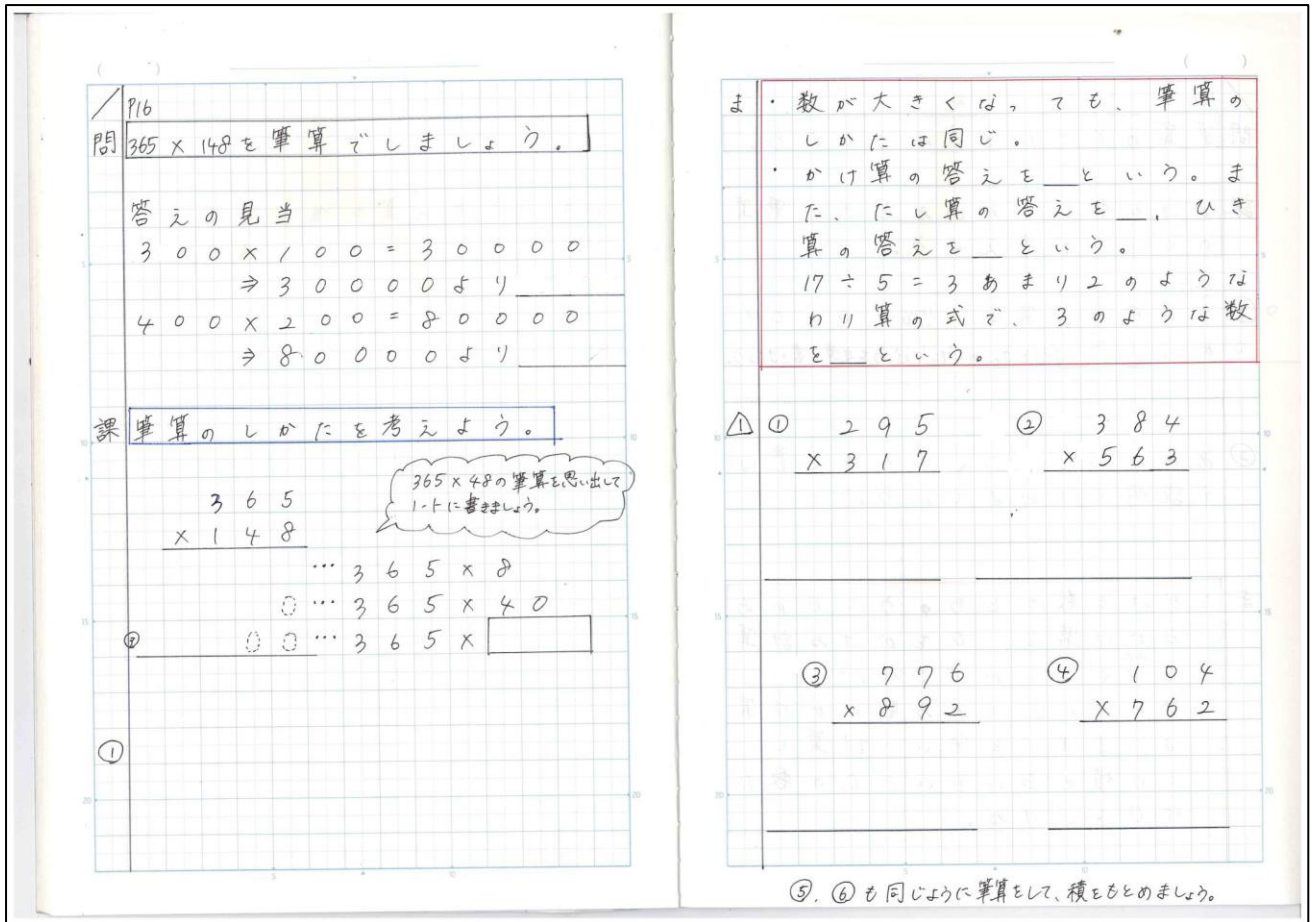 P16
問 365×148を筆算でしましょう。
答えの見当
300×100=30000
⇒30000より
400×200=80000
⇒80000より
課 筆算のしかたを考えよう。
365×48の筆算を思い出して
ノートに書きましょう。
365
×148
…365×8
0…365×40
00…365×
①
ま ・数が大きくなっても、筆算の
しかたは同じ。
・かけ算の答えを__という。ま
た、たし算の答えを__、ひき
算の答えを__という。
17÷5=3あまり2のような
わり算の式で、3のような数
を__という。
△1 ① 295 ② 384
×317 ×563
③ 776 ④ 104
×892 ×762
⑤、⑥も同じように筆算をして、積をもとめましょう。